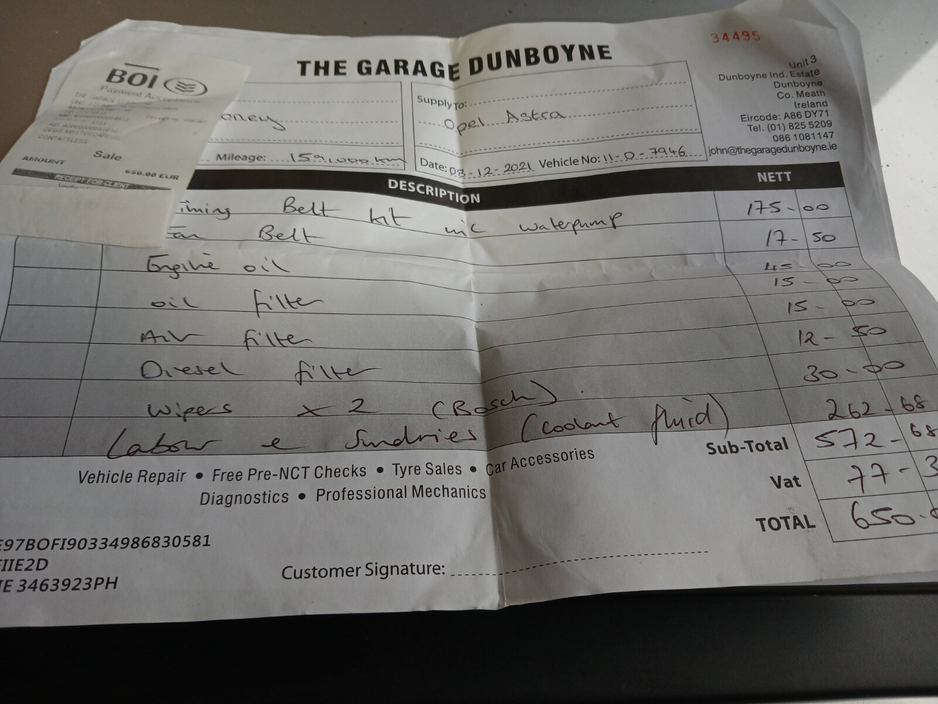 34495
THE GARAGE DUNBOYNE
Unit 3
Dunboyne Ind. Estate
Dunboyne
Co. Meath
Ireland
Eircode: A86 DY71
Tel. (01) 825 5209
086 1081147
john@thegaragedunboyne.ie
BOI
Payment Acceptance
Sale
AMOUNT
650.00 EUR
RECEIPT FOR CLIENT
oney
Mileage: 159,000 km
Supply To:
Opel Astra
Date: 03-12-2021 Vehicle No: 11-D-7946
DESCRIPTION NETT
Timing Belt kit inc waterpump 175-00
Fan Belt 17-50
Engine oil 45-00
oil filter 15-00
Air filter 15-00
Diesel filter 12-50
Wipers x 2 (Bosch) 30-00
Labour & Sundries (Coolant fluid) 262-68
Sub-Total 572-68
Vat 77-3
TOTAL 650-0
Vehicle Repair • Free Pre-NCT Checks • Tyre Sales • Car Accessories
Diagnostics • Professional Mechanics
E97BOFI90334986830581
FIIE2D
IE 3463923PH
Customer Signature: